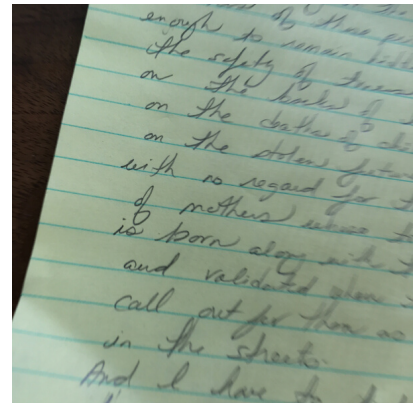 of these
enough to remain
the safety of
on the backs of
on the deaths of
on the stolen
with no regard for
of mothers whose
is born along with
and validated when
call out for them as
in the streets.
And I have to